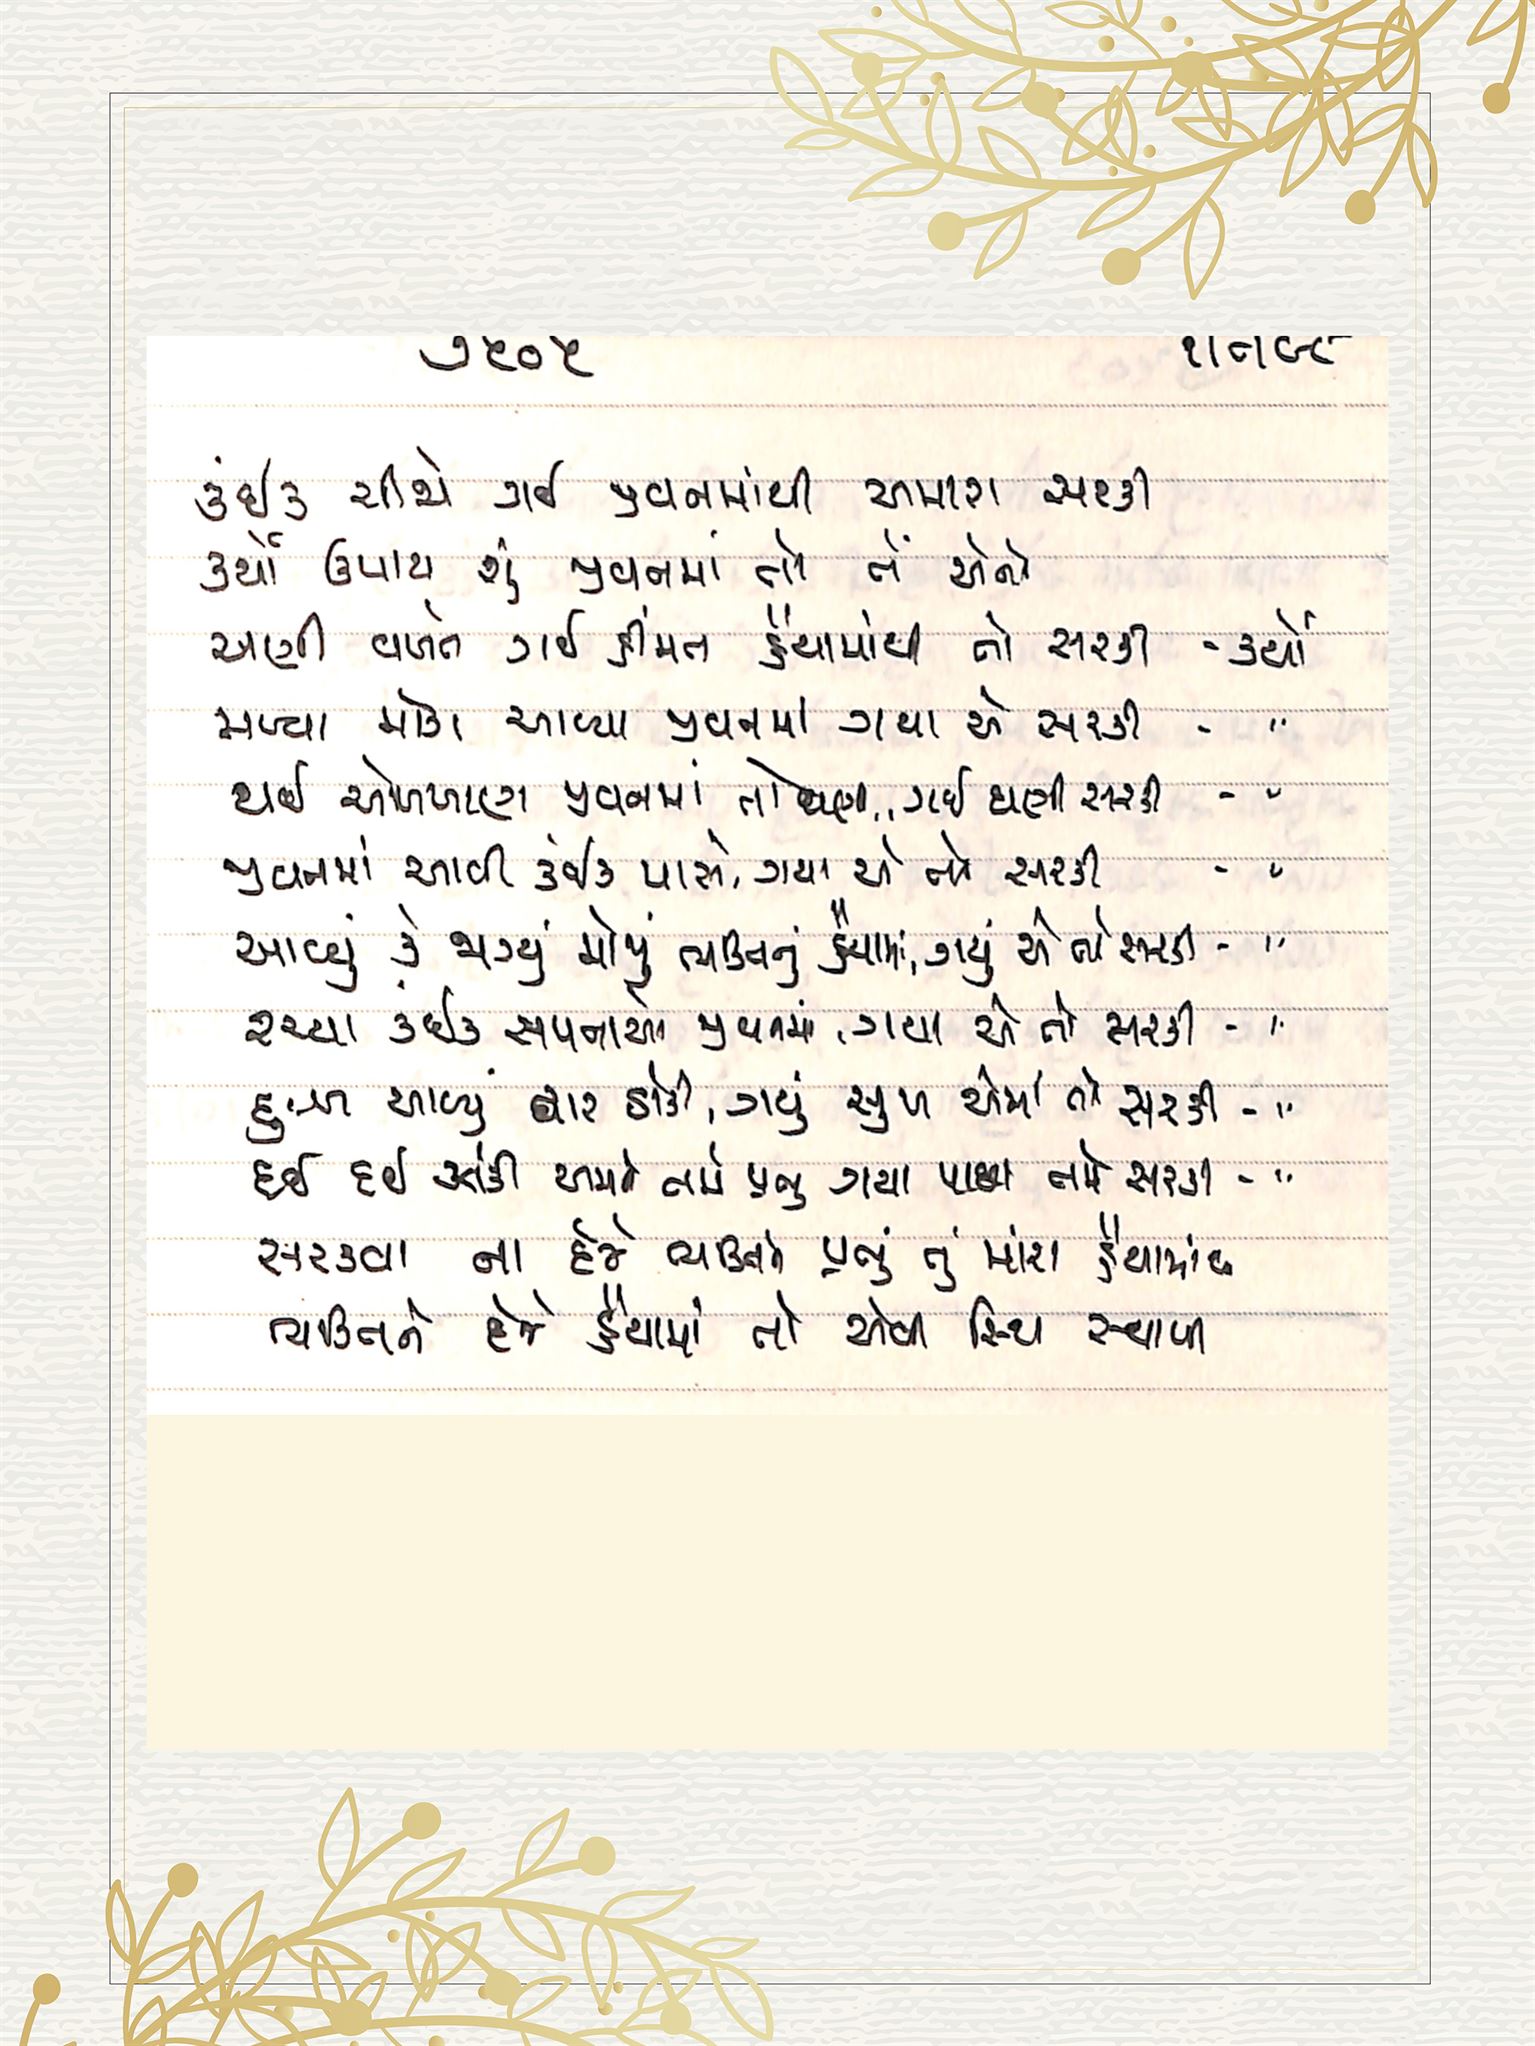 ૭૬૦૬ શનિવાર
કંઈક ચીજો ગઈ જીવનમાંથી અમારા સરકી
કર્યો ઉપાય શું જીવનમાં તો તેં એનો
અણી વખતે ગઈ હીંમત હૈંયામાંથી તો સરકી - કર્યો
મળ્યા મોકા આવ્યા જીવનમાં ગયા એ સરકી - "
થઈ ઓળખાણ જીવનમાં તો ઘણી.. ગઈ ઘણી સરકી - "
જીવનમાં આવી કંઈક પાસે, ગયા એ તો સરકી - "
આવ્યું કે જાગ્યું મોજું ભક્તિનું હૈંયામાં, ગયું એ તો સરકી - "
રચ્યા કંઈક સપનાઓ જીવનમાં, ગયા એ તો સરકી - "
દુઃખ આવ્યું દ્વાર ઠોકી, ગયું સુખ એમાં તો સરકી - "
દઈ દઈ અમને તમે પ્રભુ ગયા પાછા તમે સરકી - "
સરકવા ના દેજે ભક્તિને પ્રભું તું મારા હૈંયામાંથી
ભક્તિને દેજે હૈંયામાં તો એવી સ્થિર સ્થાપી